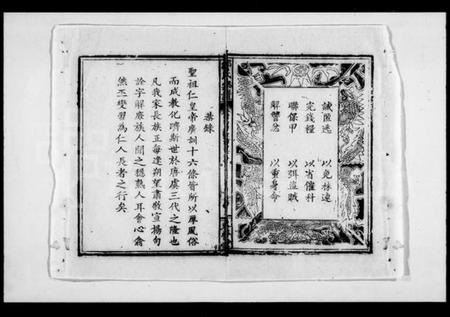 誡匿逃　以免株連
完錢糧　以省催科
聯保甲　以弭盜賊
解讐忿　以重身命
葉錄
聖祖仁皇帝廣訓十六條皆所以厚風俗
而成教化躋斯世於唐虞三代之隆也
凡我家長族正每逢朔望肅敬宣揚句
詮字解廢族人聞之穩熟人耳會心翕
然丕變習為仁人長者之行矣